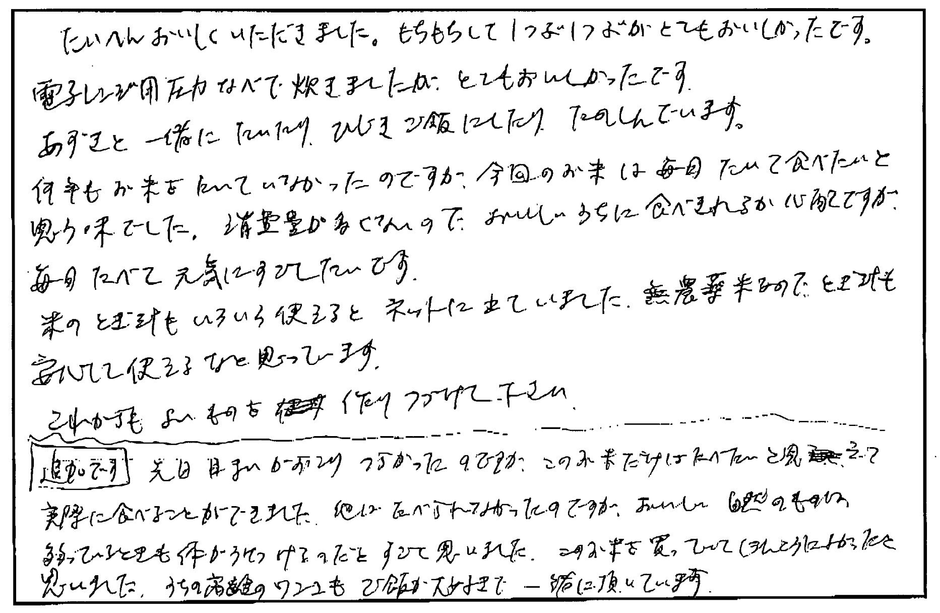 たいへんおいしくいただきました。もちもちして1つぶ1つぶがとてもおいしかったです。
電子レンジ用圧力なべで炊きましたが、とてもおいしかったです。
あずきと一緒にたいたり、ひじきご飯にしたり、たのしんでいます。
何年もお米をたいていなかったのですが、今回のお米は毎日たいて食べたいと
思う味でした。消費量が多くないので、おいしいうちに食べきれるか心配ですが、
毎日たべて元気にすごしたいです。
米のとぎ汁もいろいろ使えるとネットに出ていました。無農薬米なので、とぎ汁も
安心して使えるなと思っています。
これからもよいものを作りつづけて下さい
追加です 先日目まいがおこりつらかったのですが、このお米だけはたべたいと思えて
実際に食べることができました。他はたべられなかったのですが、おいしい自然のものは
弱っているときも体がうけつけるのだとすごく思いました。このお米を買っていてほんとうによかったと
思いました。うちの高齢のワンコもご飯が大好きで一緒に頂いています。